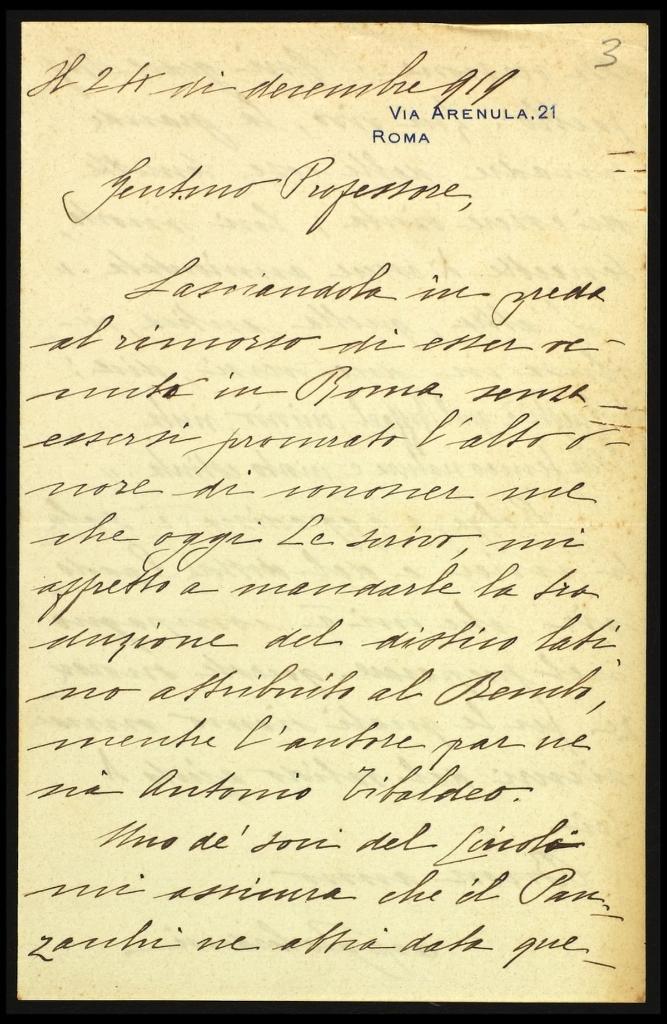 3
Il 24 di decembre 919
VIA ARENULA, 21
ROMA
Gentmo Professore,
Lasciandola in preda
al rimorso di esser ve-
nuto in Roma senza
essersi procurato l'alto o-
nore di conoscer me
che oggi Le scrivo, mi
affretto a mandarle la tra
duzione del distico lati
no attribuito al Bembo,
mentre l'autore par ne
sia Antonio Tibaldeo.
Uno de' soci del Circolo
mi assicura che il Pan-
zacchi ne abbia data que-